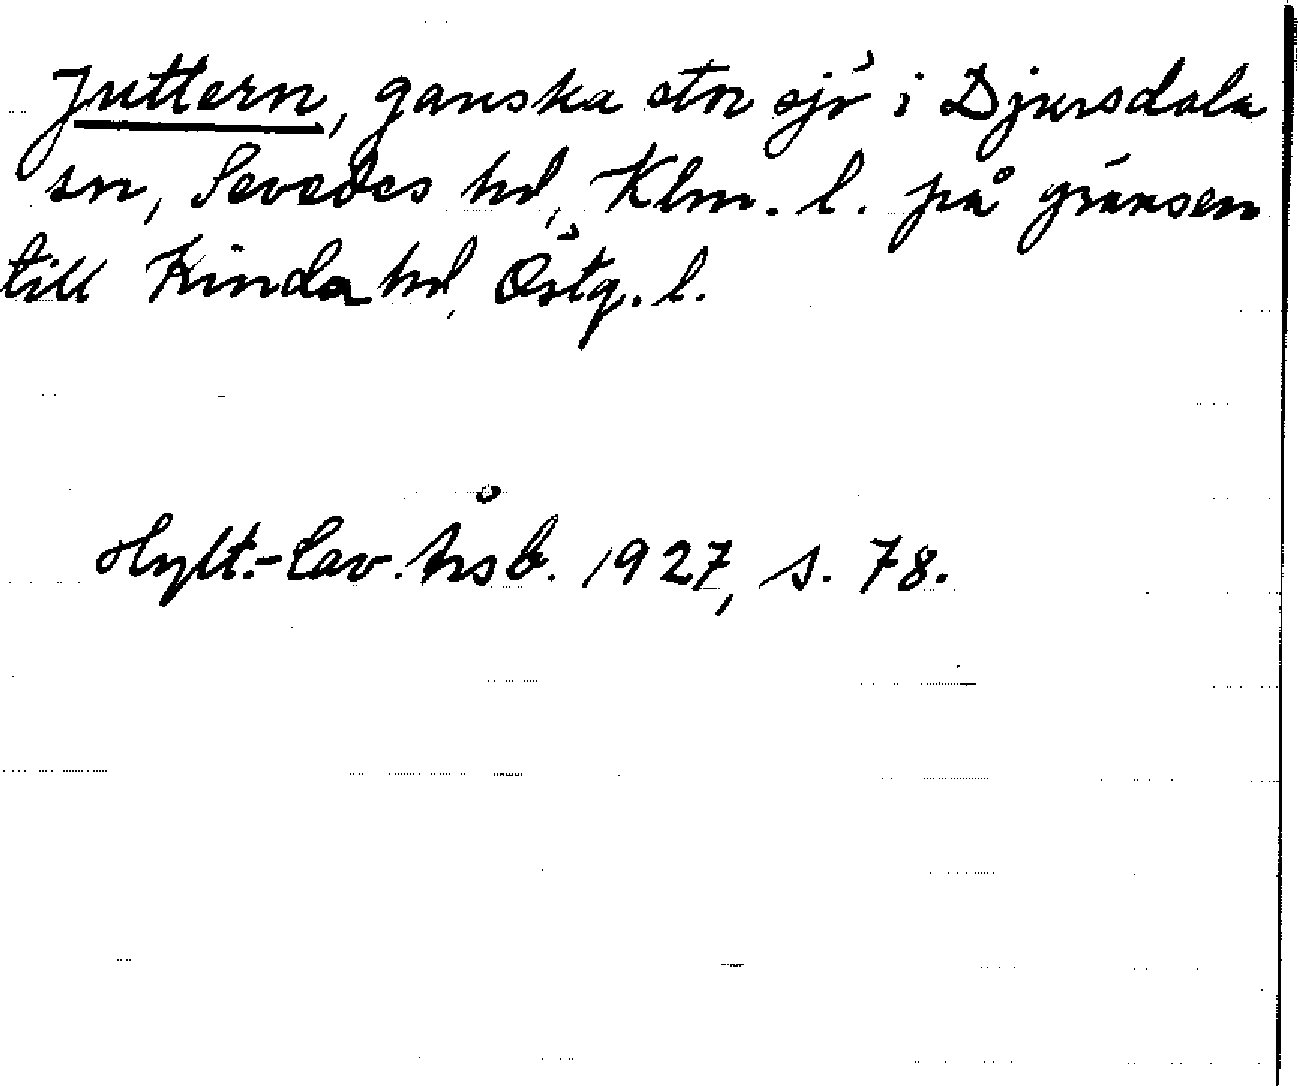 Juttern, ganska stor sjö i Djursdala
sn, Sevedes hd, Klm. l. på gränsen
till Kinda hd, Östg. l.
Hylt.-Cav. Årsb. 1927, s. 78.